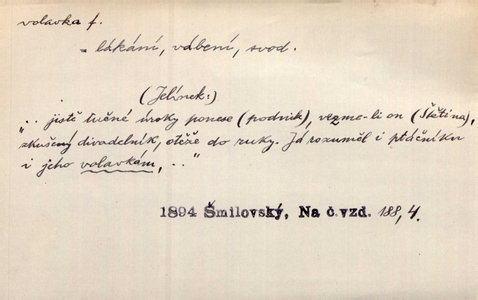 volavka f.
= lákání, vábení, svod.
(Jelínek:)
".. jistě tučné úroky ponese (podnik), vezme-li on (Štětina),
zkušený divadelník, otěže do ruky. Já rozuměl i ptáčníku
i jeho volavkám, .."
1894 Šmilovský, Na č.vzd. 188, 4.